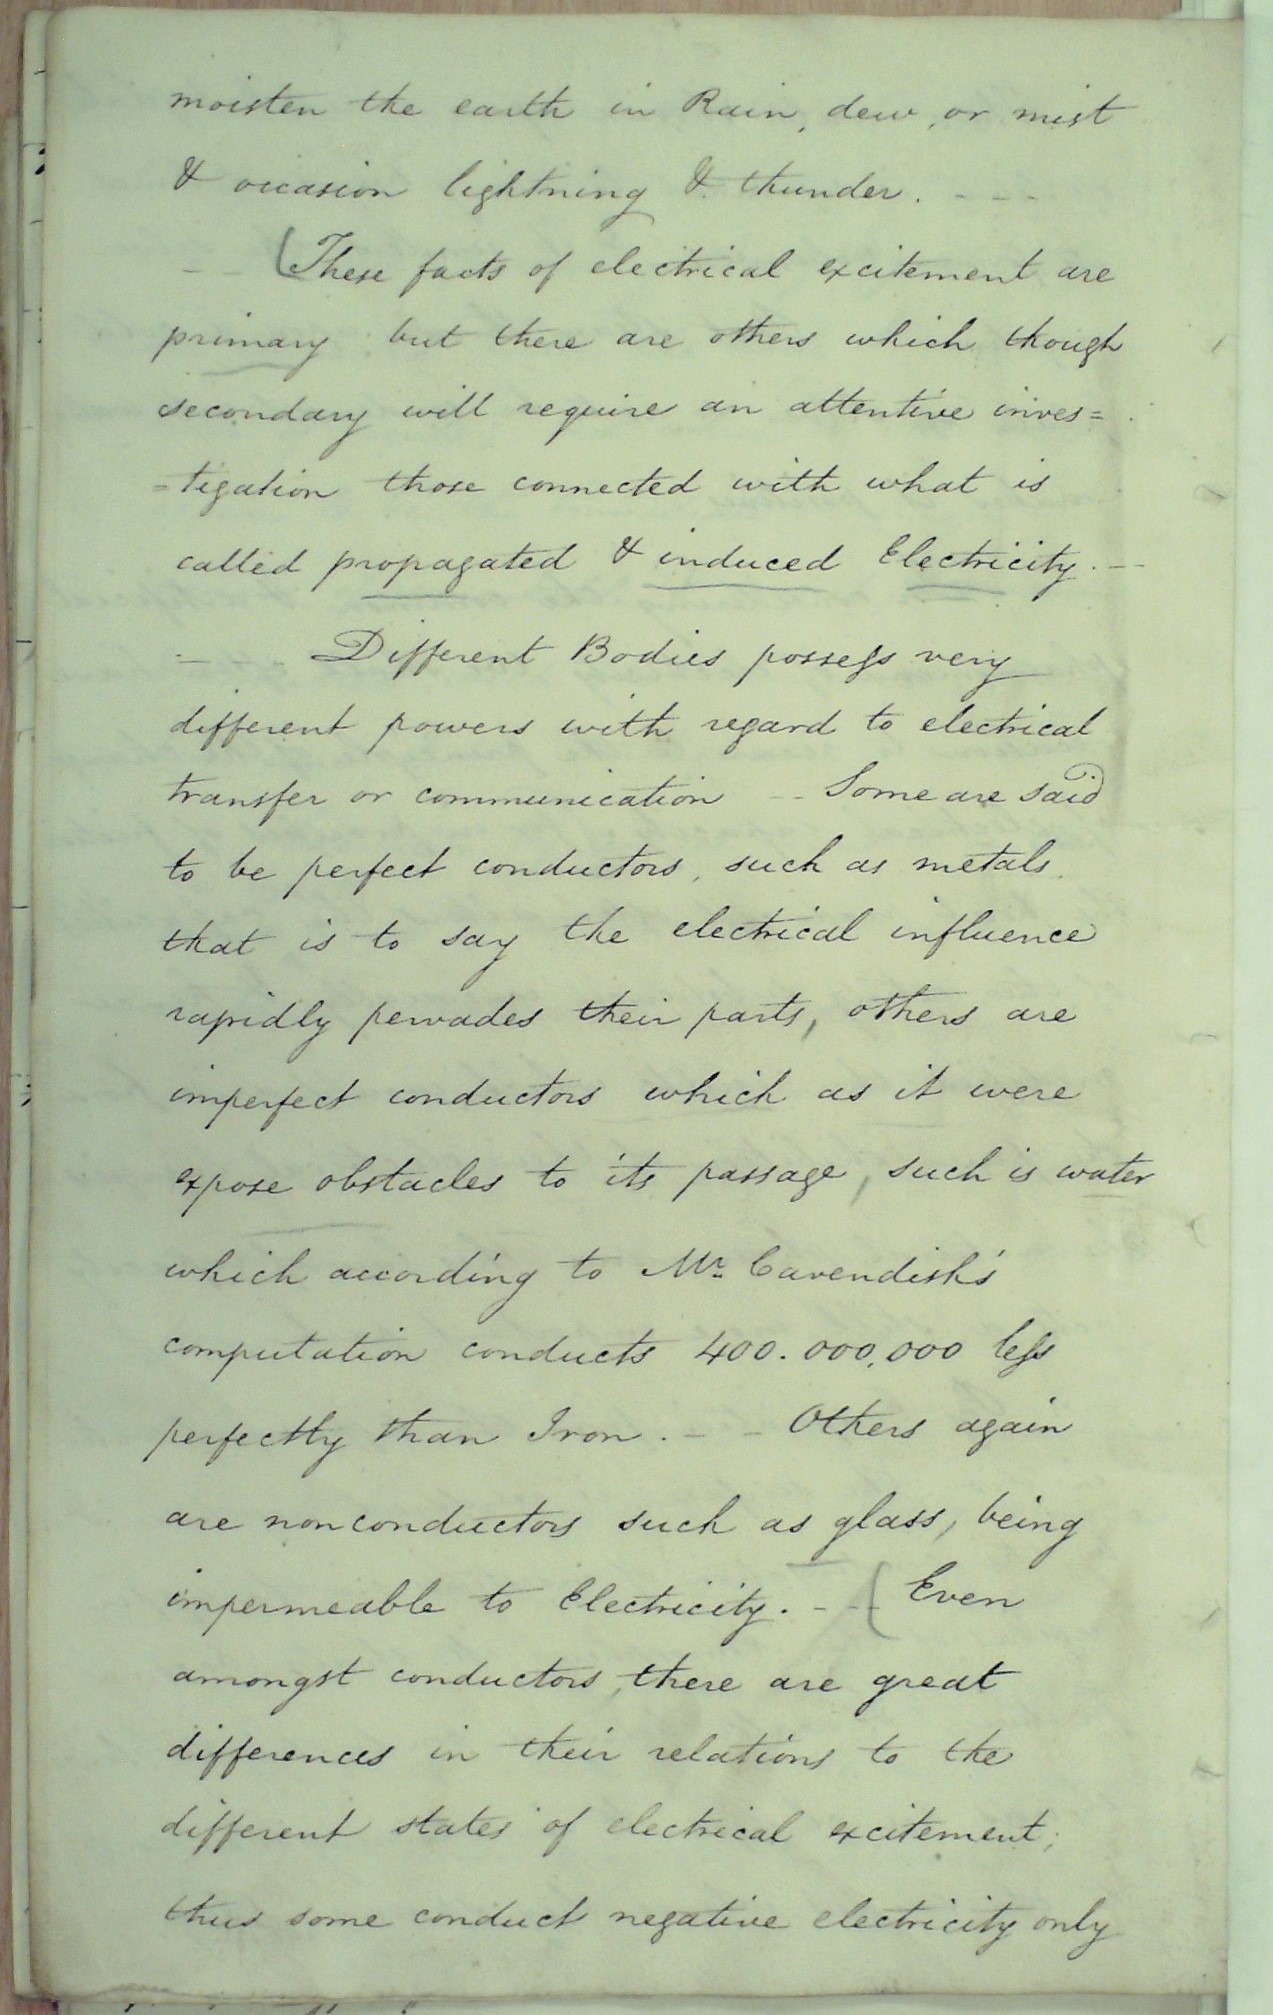 moisten the earth in Rain, dew, or mist
& occasion lightning & thunder. - - -
- (These facts of electrical excitement are
primary but there are others which though
secondary will require an attentive inves=
=tigation those connected with what is
called propagated & induced Electricity. -
- - - Different Bodies possess very
different powers with regard to electrical
transfer or communication - - Some are said
to be perfect conductors, such as metals.
that is to say the electrical influence
rapidly pervades their parts, others are
imperfect conductors which as it were
expose obstacles to its passage, such is water
which according to Mr. Cavendish's
computation conducts 400.000,000 less
perfectly than Iron. - - Others again
are nonconductors such as glass, being
impermeable to Electricity. - - (Even
amongst conductors, there are great
differences in their relations to the
different states of electrical excitement;
thus some conduct negative electricity only